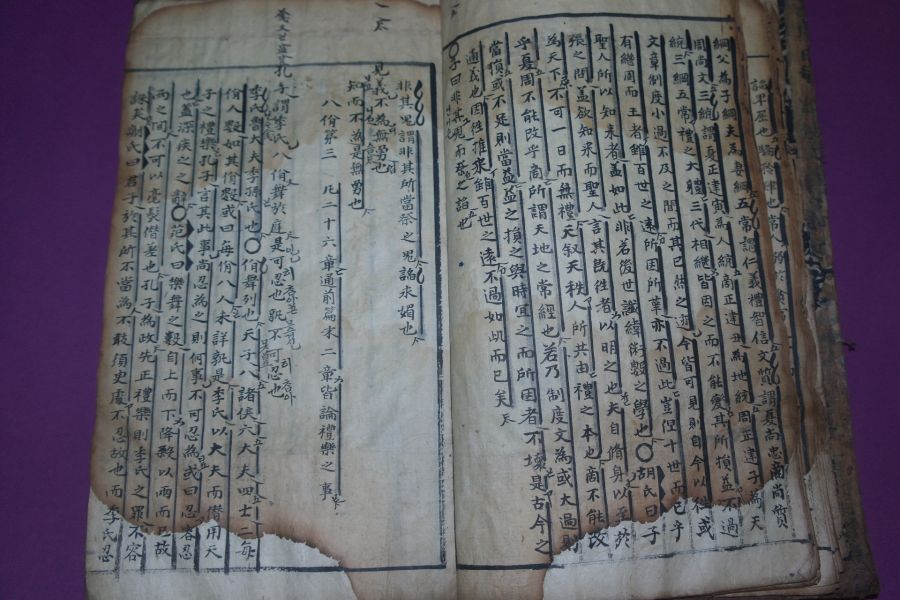 諂卑屈也
綱父為子綱夫為妻綱五常謂仁義禮智信文質謂夏尚忠商尚質
周尚文三統謂夏正建寅為人統商正建丑為地統周正建子為天
統三綱五常禮之大軆三代相繼皆因之而不能變其所損益不過
文章制度小過不及之間而其已然之迹今皆可見則自今以徃或
有繼周而王者雖百世之遠所因所革亦不過此豈但十世而已乎
聖人所以知来者盖如此非若後世讖緯術數之學也○胡氏曰子
張之問盖欲知来而聖人言其旣徃者以明之也夫自脩身以至於
為天下不可一日而無禮天叙天秩人所共由禮之本也商不能改
乎夏周不能改乎商所謂天地之常經也若乃制度文為或大過則
當損或不足則當益益之損之與時宜之而所因者不壞是古今之
通義也因徃推來雖百世之遠不過如此而已矣
○子曰非其鬼而祭之諂也
非其鬼謂非其所當祭之鬼諂求媚也
見義不為無勇也
知而不為是無勇也
八佾第三 凡二十六章通前篇末二章皆論禮樂之事
孔子謂季氏八佾舞於庭是可忍也孰不可忍也
季氏魯大夫季孫氏也○佾舞列也天子八諸侯六大夫四士二每
佾人數如其佾數或曰每佾八人未詳孰是季氏以大夫而僭用天
子之禮樂孔子言其此事尚忍為之則何事不可忍為或曰忍容忍
也盖深疾之之辭○范氏曰樂舞之數自上而下降殺以兩而已故
兩之間不可以毫髮僭差也孔子為政先正禮樂則季氏之罪不容
誅矣謝氏曰君子於其所不當為不敢須臾處不忍故也而季氏忍